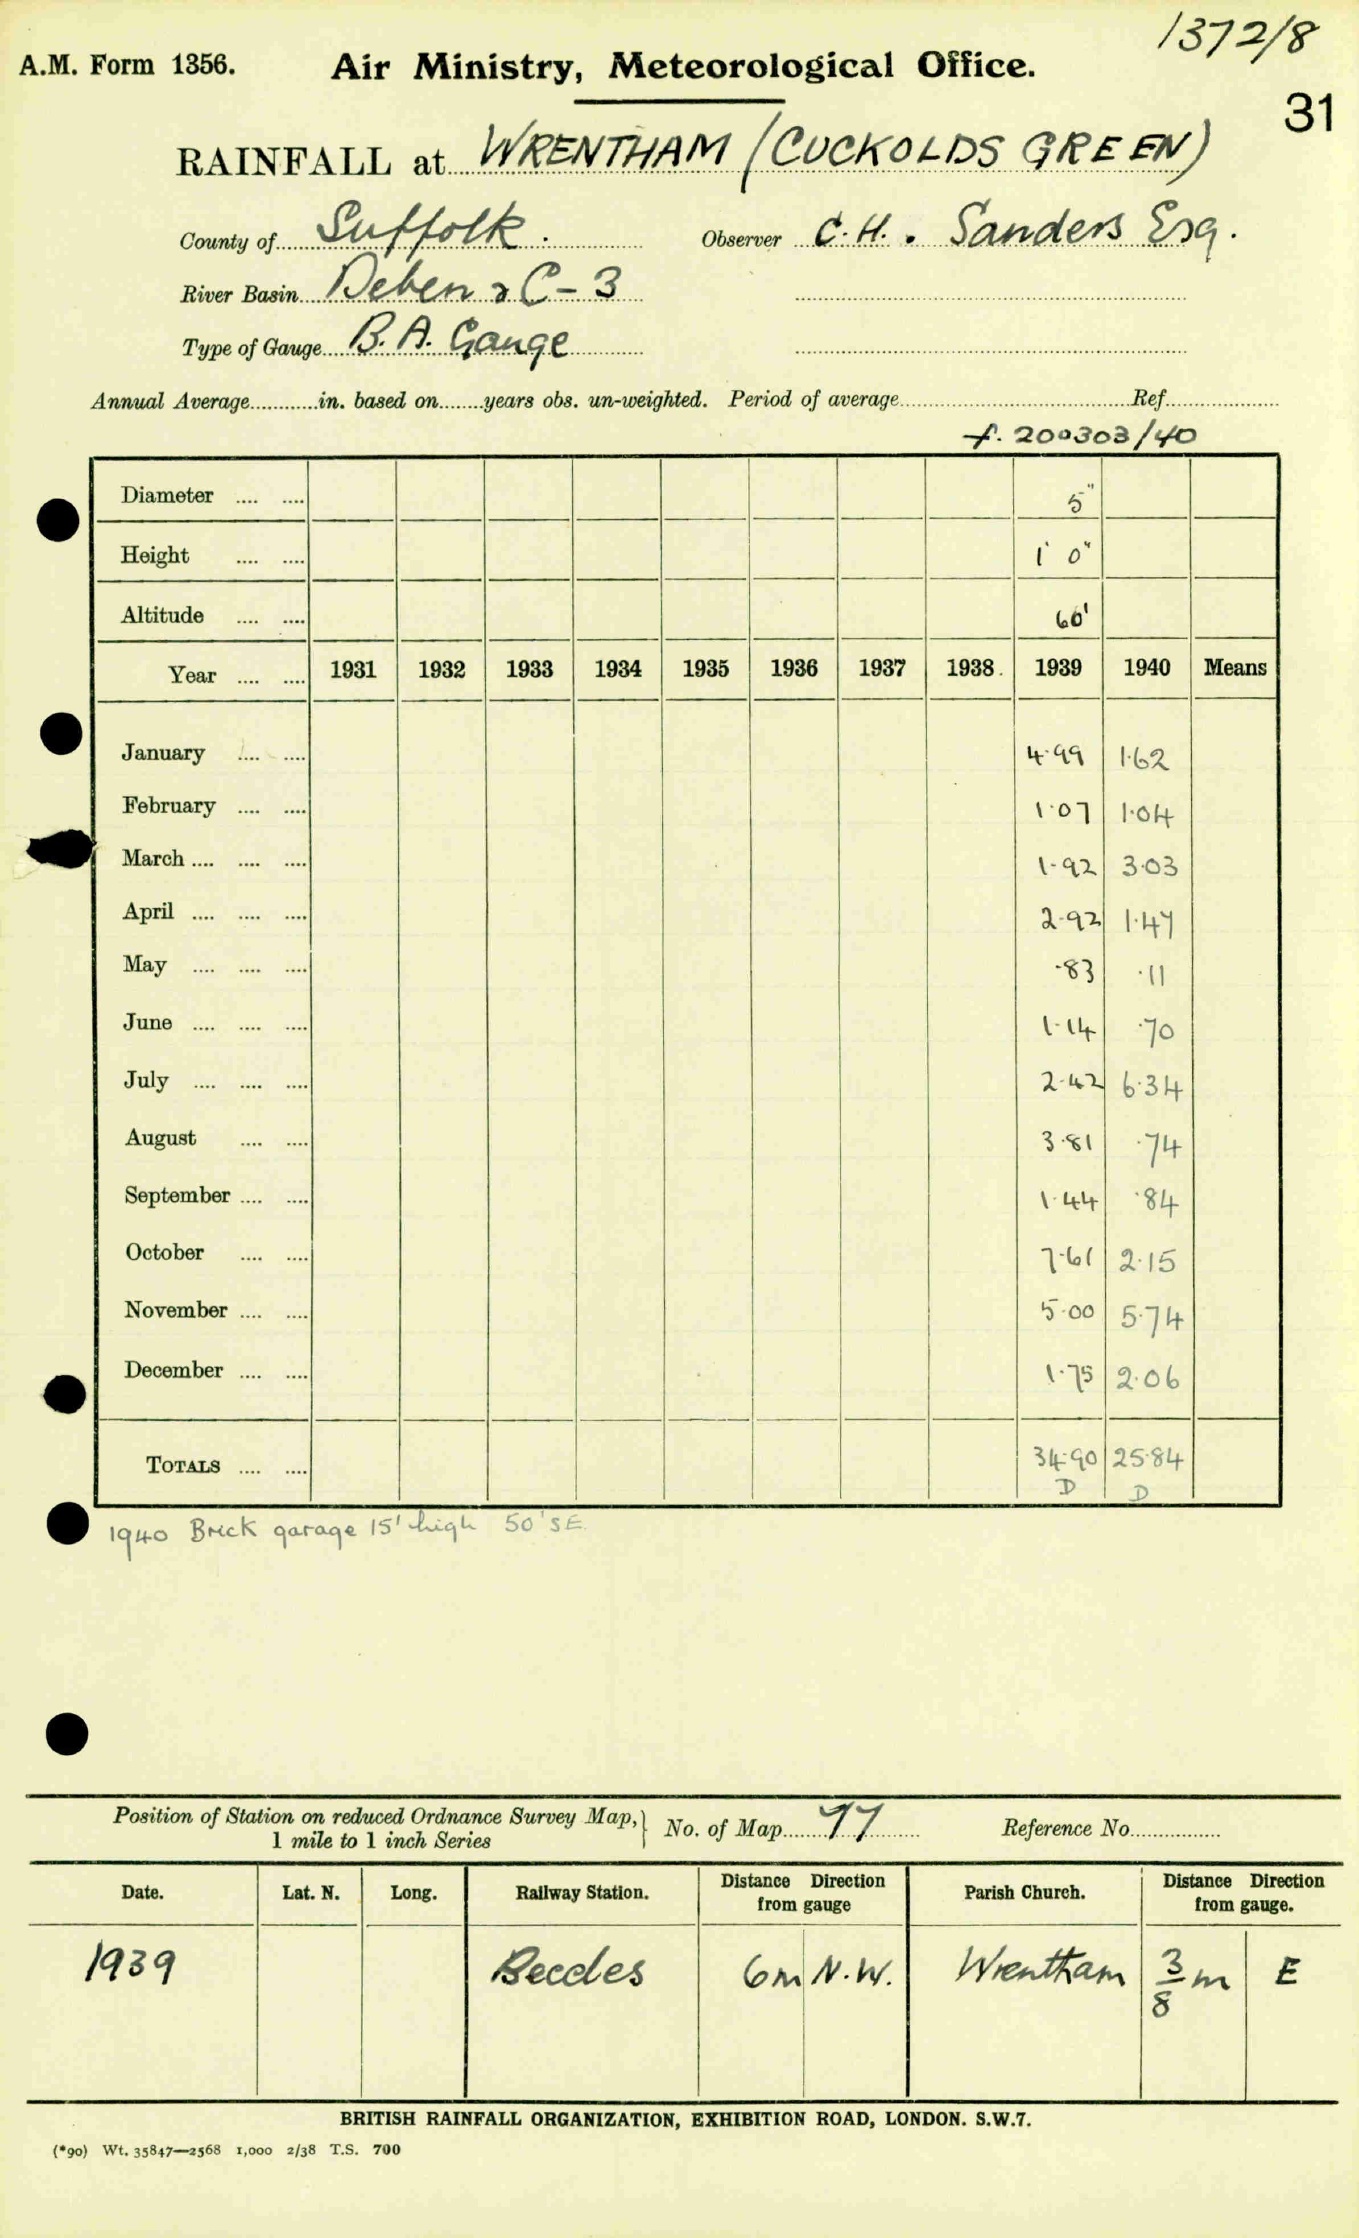 1372/8
A.M. Form 1356. Air Ministry, Meteorological Office.
31
RAINFALL at WRENTHAM (CUCKOLDS GREEN)
County of Suffolk. Observer C.H. Sanders Esq.
River Basin Deben & C-3
Type of Gauge B.A. Gauge
Annual Average............in. based on........years obs. un-weighted. Period of average........ Ref........
f. 200303/40
Diameter .... .... 5"
Height .... .... 1' 0"
Altitude .... .... 60'
Year .... .... 1931 1932 1933 1934 1935 1936 1937 1938 1939 1940 Means
January .... .... 4.99 1.62
February .... .... 1.07 1.04
March .... .... .... 1.92 3.03
April .... .... .... 2.92 1.47
May .... .... .... .83 .11
June .... .... .... 1.14 .70
July .... .... .... 2.42 6.34
August .... .... 3.81 .74
September .... .... 1.44 .84
October .... .... 7.61 2.15
November .... .... 5.00 5.74
December .... .... 1.75 2.06
TOTALS .... .... 34.90 25.84
D D
1940 Brick garage 15' high 50' SE
Position of Station on reduced Ordnance Survey Map, 1 mile to 1 inch Series } No. of Map 77 Reference No...............
Date. Lat. N. Long. Railway Station. Distance Direction from gauge Parish Church. Distance Direction from gauge.
1939 Beccles 6m N.W. Wrentham 3/8 m E
BRITISH RAINFALL ORGANIZATION, EXHIBITION ROAD, LONDON. S.W.7.
(*90) Wt. 35847—2568 1,000 2/38 T.S. 700